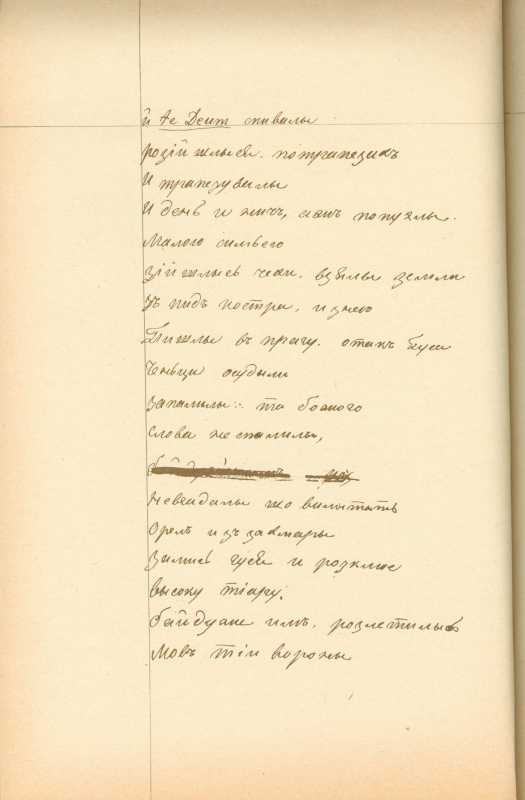 й те Деит спивалы
розійшлыся. по трапезамъ
И трапезувалы
И день и ничъ, ажъ попухлы.
Малого симъего
Зійшлысь чехи. взялы земли
Зъ пидъ костра, и з нею
Пишлы въ прагу. отакъ Гуса
Ченьци осудыли
Запалылы.. та божого
Слова не спалылы,
Невгадалы що вылетыть
Орелъ изъ за хмары
Замисъ гуся и розклює
высоку тіару.
байдуже имъ. розлетилысь
Мовъ тіи вороны